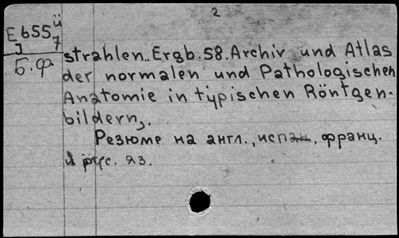 2
E655ü
J 7
Б.ф.
strahlen.. Ergb. 58. Archiv und Atlas
der normalen und Pathologischen
Anatomie in typischen Röntgen-
bildern,.
Резюме на англ., испан, франц.
и рус. яз.